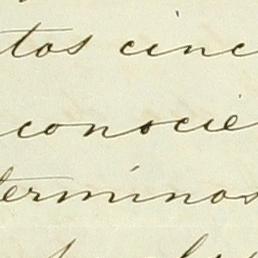 tos cinc
conocie
terminos